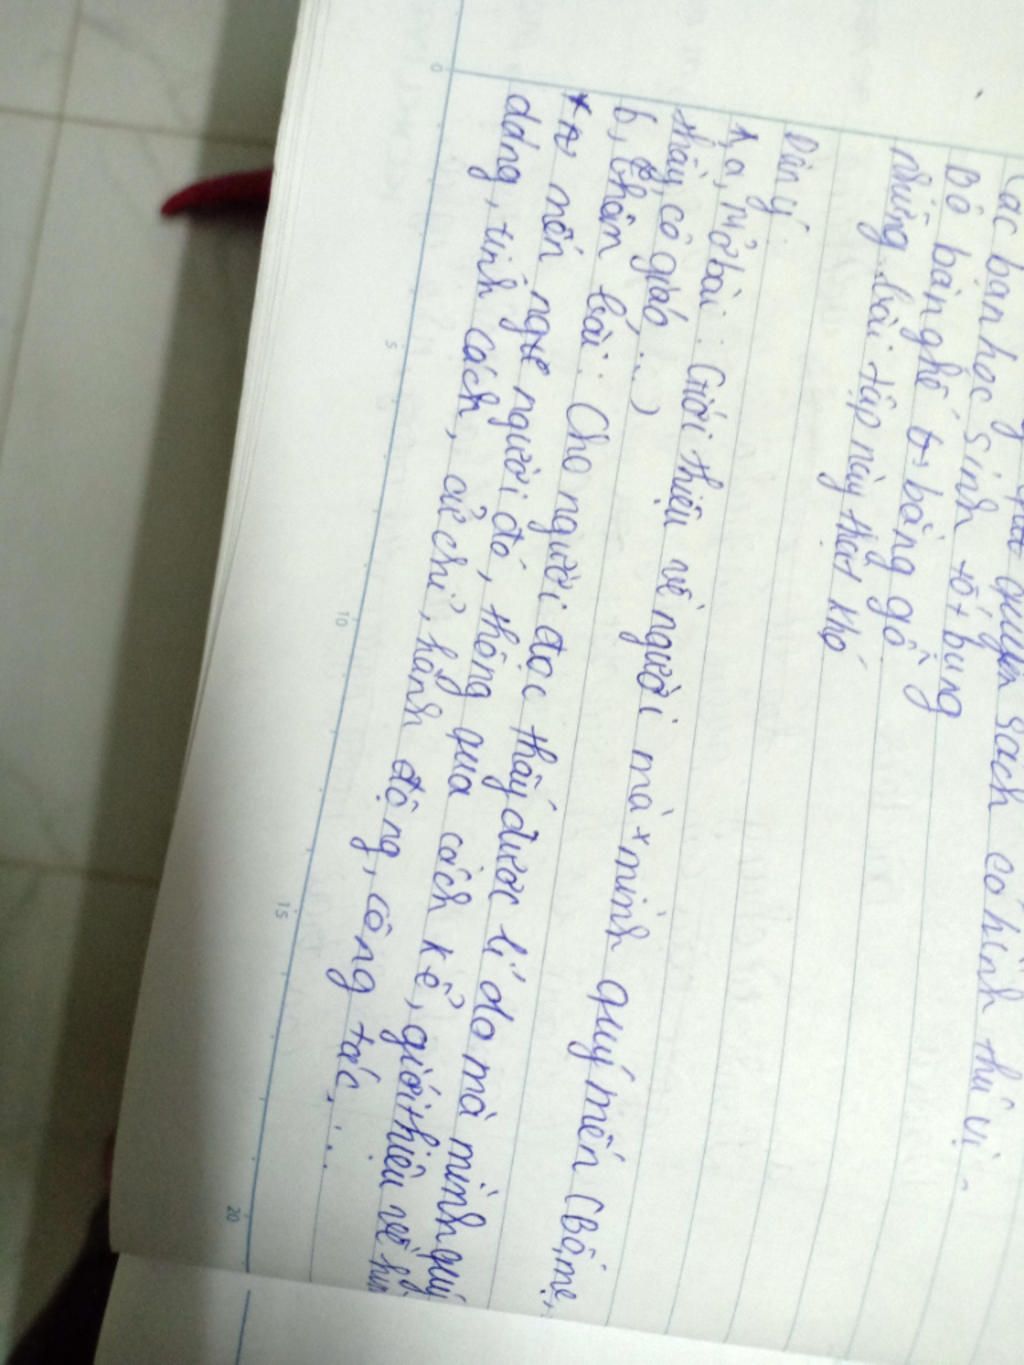 các bạn học sinh tốt bụng quyển sách có hình thú vị
Bộ bàn ghế bằng gỗ
những bài tập này thật khó
Dàn ý
1, a, Mở bài: Giới thiệu về người mà mình quý mến (Bố, mẹ,
thầy, cô giáo,...)
b, Thân bài: Cho người đọc thấy được lí do mà mình quý
mến người đó, thông qua cách kể, giới thiệu về hình
dáng, tính cách, cử chỉ, hành động, công tác,...
0
5
10
15
20